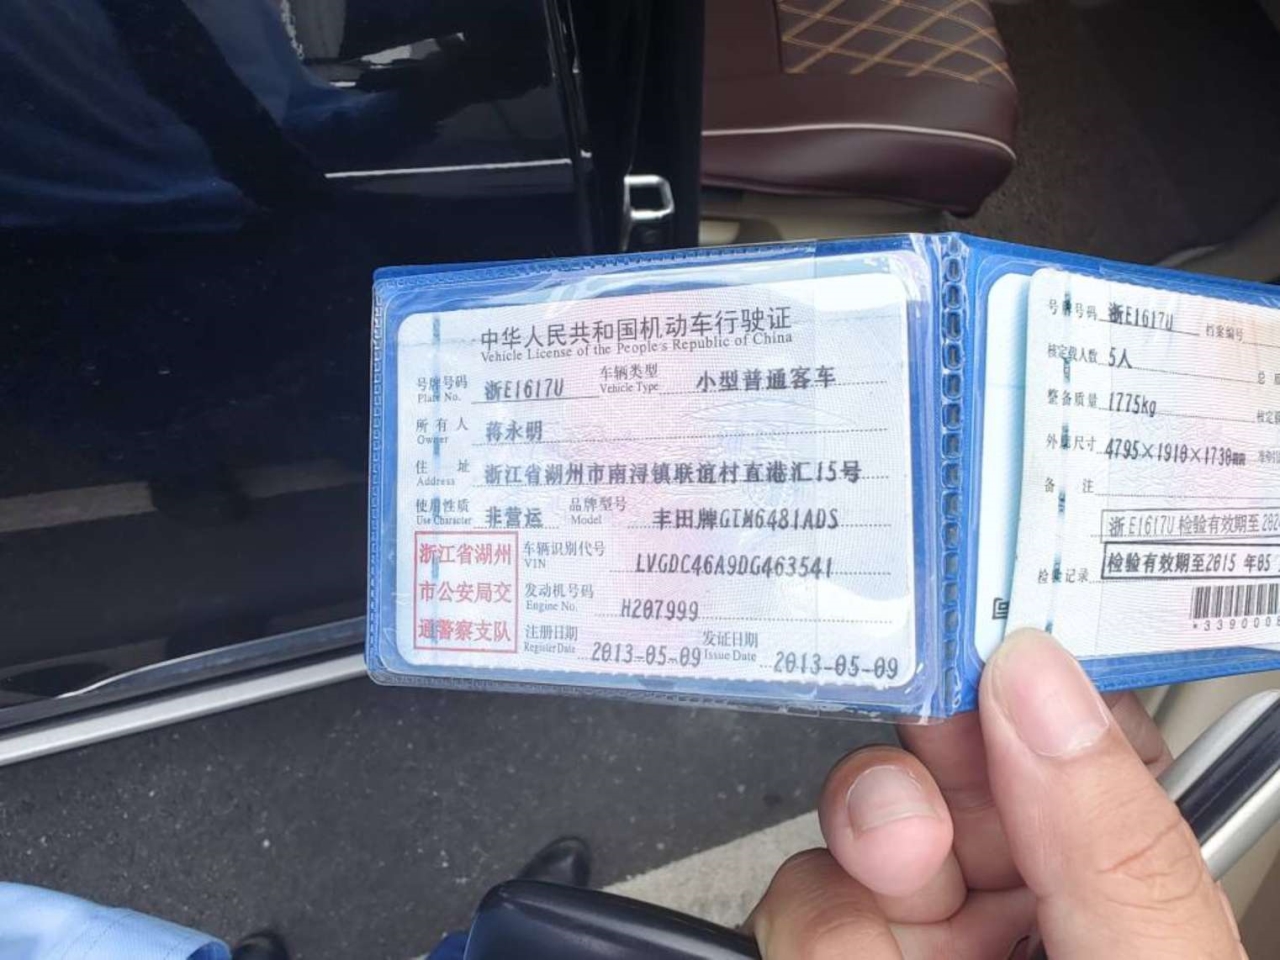 中华人民共和国机动车行驶证
Vehicle License of the People's Republic of China
号牌号码 浙E1617U 车辆类型 小型普通客车
Plate No. Vehicle Type
所有人 蒋永明
Owner
住址 浙江省湖州市南浔镇联谊村直港汇15号
Address
使用性质 非营运 品牌型号 丰田牌GTM6481ADS
Use Character Model
浙江省湖州
市公安局交
通警察支队
车辆识别代号 LVGDC46A9DG463541
VIN
发动机号码 H207999
Engine No.
注册日期 2013-05-09 发证日期 2013-05-09
Register Date Issue Date
号牌号码 浙E1617U 档案编号
核定载人数 5人 总
整备质量 1775kg 核定
外廓尺寸 4795×1910×1730mm
备注
浙E1617U 检验有效期至
检验记录 检验有效期至2015 年05
*339000